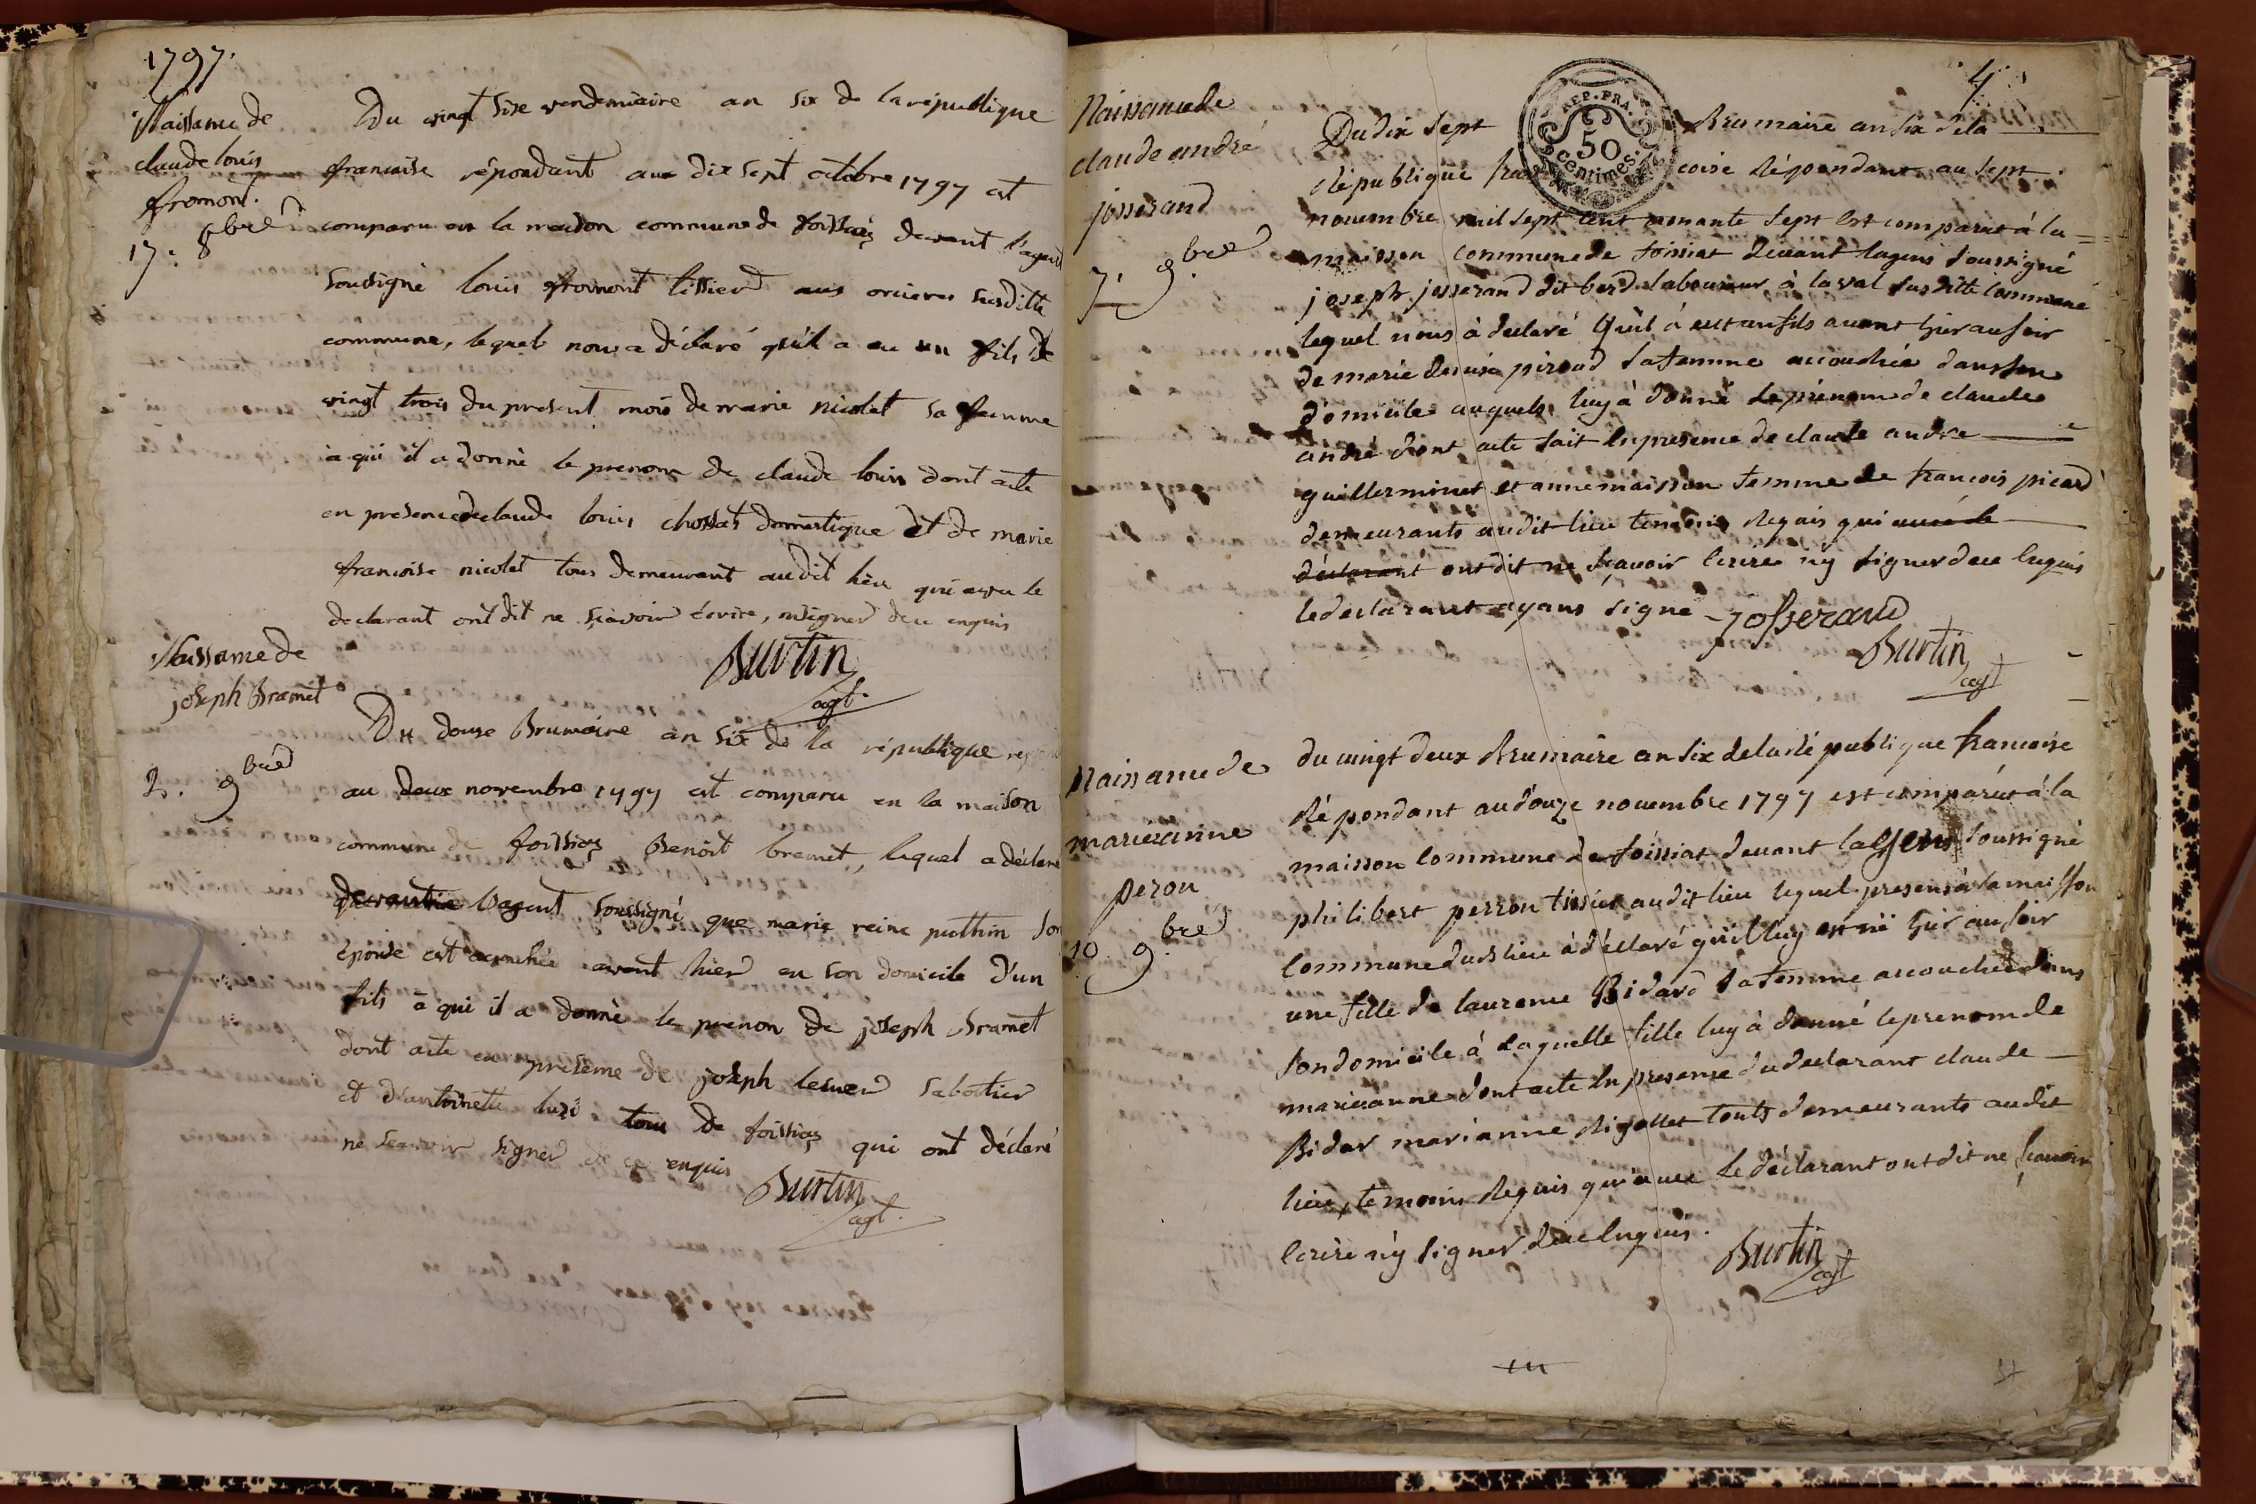 1797.
Naissance de
claude louis
fromont.
17. 8bre
Du vingt sixe vendemiaire an six de la republique
francoise répondant aux dix sept octobre 1797 est
comparu en la maison commune de foissiaz devant l'agent
soussigné louis fromont tissier aus orcieres susditte
commune, lequel nous a déclaré qu'il a eu un fils de
vingt trois du present mois de marie nicolet sa femme
a qui il a donné le prenom de claude louis dont acte
en presence de claude louis chossat domestique et de marie
francoise nicolet tous demeurant audit lieu qui avec le
declarant ont dit ne sçavoir écrire, ni signer de ce enquis
Burtin
agt.
Naissance de
joseph Bramet
2. 9bre
Du douze Brumaire an six de la république
au deux novembre 1797 est comparu en la maison
commune de foissiaz Benoit bramet, lequel a déclaré
l'agent soussigné que marie reine puthin son
épouse est acouchée avant hier en son domicile d'un
fils a qui il a donné le prenon de joseph Bramet
dont acte en presence de joseph lesueur sabotier
et d'antoinette luzi tous de foissiaz qui ont déclaré
ne scavoir signer de ce enquis
Burtin
agt.
4
Naissance de
claude andré
josserand
7. 9bre
REP. FRA.
50
centimes.
Du dix sept Brumaire an six de la
république francoise répondant au sept
novembre mil sept cent nonante sept est comparut à la
maison commune de foissiat devant lagens soussigné
joseph josserand dit berd laboureur à laval susditte commune
lequel nous à declaré qu'il à eut un fils avant hier au soir
de marie piroud sa femme accouchée dans son
domicile auquels luy à donné le prénom de claude
andré dont acte fait en presence de claude andre
guillerminet et anne maisson femme de francois picard
demeurants audit lieu temoins requis qui avec le
déclarant ont dit ne sçavoir ecrire n'y signer de ce enquis
le declarant ayans signé josserand
Burtin
agt
Naissance de
marieanne
peron
10. 9bre
du vingt deux Brumaire an six de la république francoise
répondant au douze novembre 1797 est comparut à la
maisson commune de foissiat devant lagens soussigné
philibert perron tissier audit lieu lequel presens à la maisson
commune dudt lieu à déclaré qu'il luy est né hier au soir
une fille de laurence Bidard sa femme accouchée dans
son domicile à laquelle fille luy à donné le prenom de
marieanne dont acte en presence du declarant claude
Bidar marianne rigollet touts demeurants audit
lieu, temoins requis qui avec le déclarant ont dit ne scavoir
ecrire n'y signer de ce enquis.
Burtin
agt